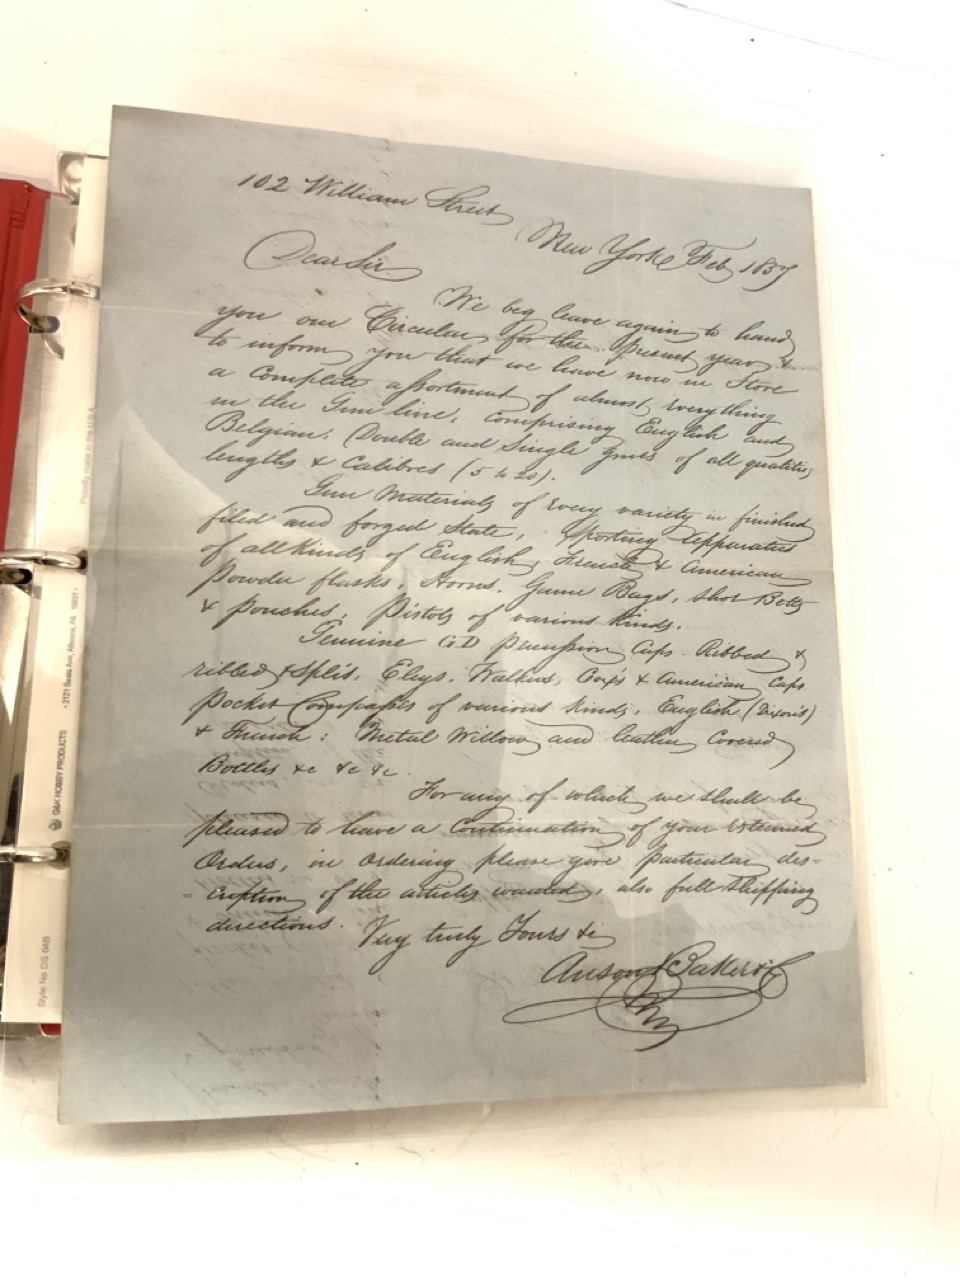 102 William Street
New York Feb 1837
Dear Sir
We beg leave again to hand
you our Circular for the present year &
to inform you that we have now in Store
a Complete assortment of almost everything
in the Gun line, Comprising English and
Belgian, Double and Single guns of all qualities
lengths & Calibres (5 to 20).
Gun Materials of every variety in finished
filed and forged State, Sporting Apparatus
of all Kinds of English, French & American
Powder flasks, Horns, Game Bags, Shot Belts
& pouches, Pistols of various Kinds.
Genuine G.D percussion Caps. Ribbed &
ribbed & Split, Eleys, Walkers, Cox's & American Caps
Pocket Compasses of various Kinds, English (Dixon's)
& French; Metal Willow and leather Covered
Bottles &c &c &c.
For any of which we shall be
pleased to have a Continuation of your esteemed
Orders, in ordering please give particular des=
=cription of the articles wanted, also full Shipping
directions.
Very truly Yours &c
Anson Baker & Co
Proudly made in the U.S.A.
• 2121 Beale Ave, Altoona, PA 16601 •
G&K HOBBY PRODUCTS
Style No DS 04B